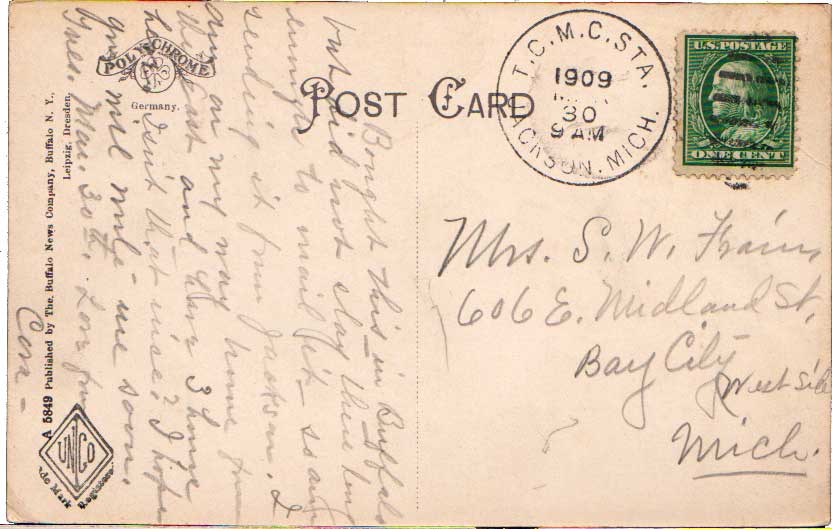 POST CARD
POLYCHROME
Germany.
T.C.M.C.STA.
JACKSON. MICH.
1909
30
9 AM
U.S. POSTAGE
ONE CENT
Mrs. S. W. Frain
606 E. Midland St,
Bay City
West Side
Mich.
Bought this in Buffalo
but did not stay there long
enough to mail it - so am
sending it from Jackson. I
am on my way home from
the East and have 3 hours
here. Isn't that nice? I hope
you will write me soon.
Tues. Mar. 30th. Love from
Cora -
A 5849 Published by The Buffalo News Company, Buffalo N. Y.,
Leipzig, Dresden,
UNCO
Trade Mark Registered